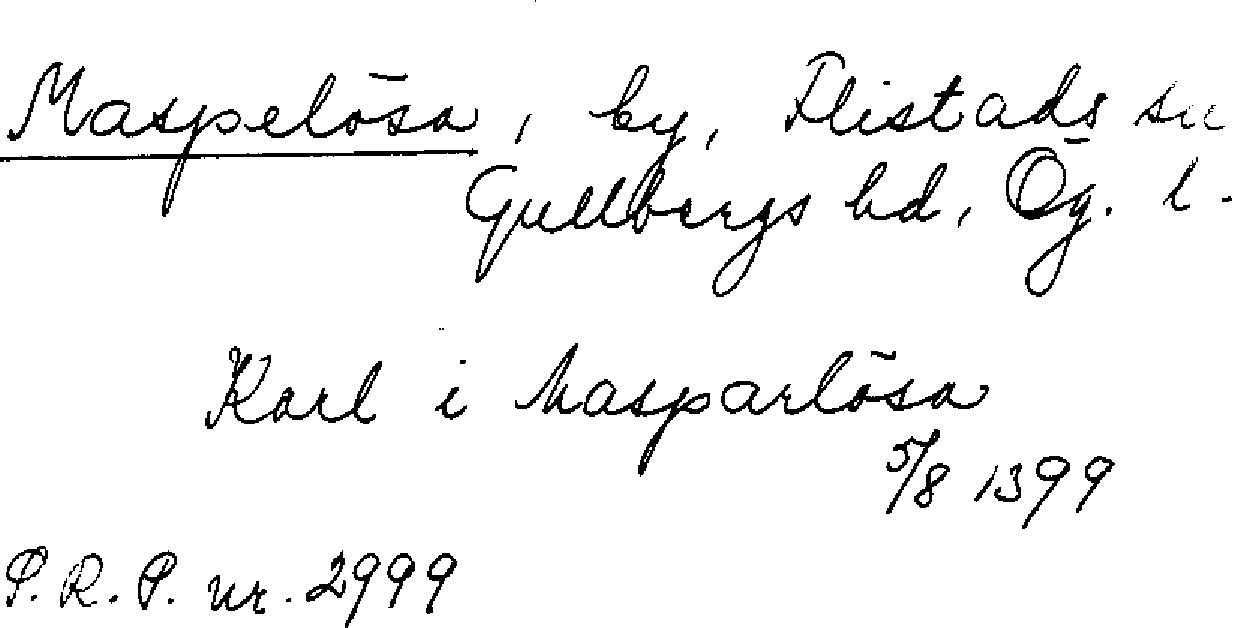 Maspelösa, by, Flistads sn
Gullbergs hd, Ög. l.
Karl i Masparlösa
5/8 1399
S.R.P. nr. 2999